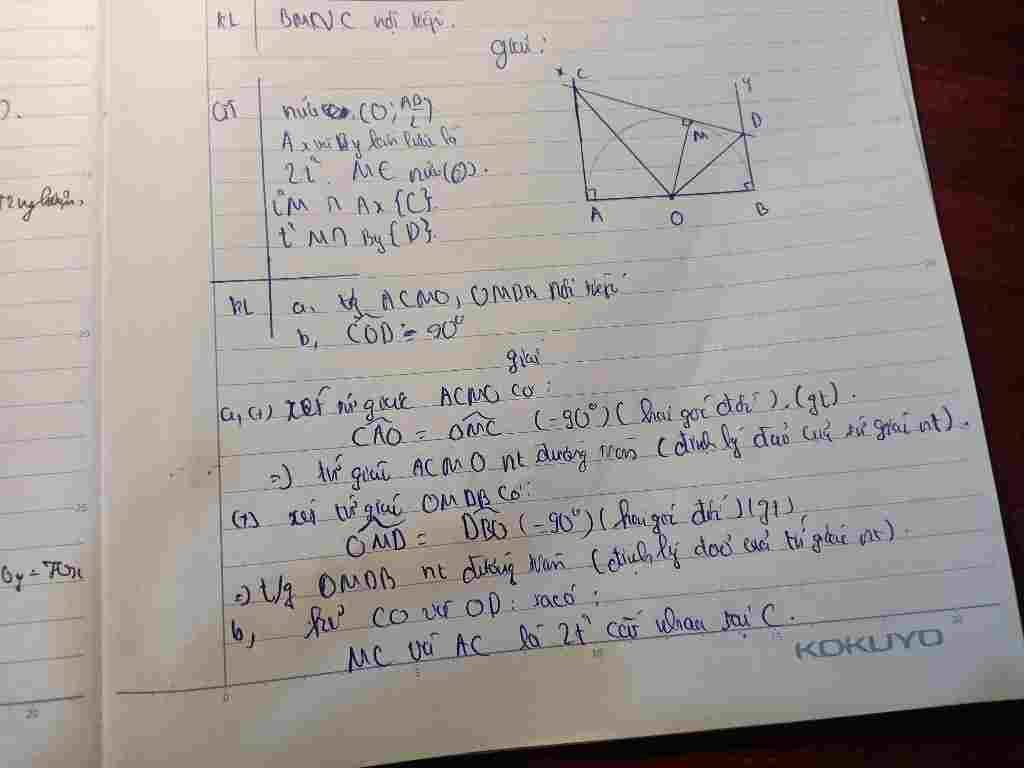 KL BMNC nội tiếp.
giải:
GT nửa (O; AB/2)
Ax và By lần lượt là
2t². M∈ nửa (O).
t² M ∩ Ax {C}.
t² M ∩ By {D}.
KL a, tg ACMO, OMDB nội tiếp
b, COD = 90°
giải
a, (+) xét tứ giác ACMO có:
CAO = OMC (=90°) (hai góc đối). (gt).
=) tứ giác ACMO nt đường tròn (định lý đảo của tứ giác nt).
(+) xét tứ giác OMDB có:
OMD = DBO (=90°) (hai góc đối) (gt)
=) t/g OMDB nt đường tròn (định lý đảo của tứ giác nt).
b, CO và OD: ta có:
MC và AC là 2t² cắt nhau tại C.
x C
y
D
M
A O B
By =
KOKUYO